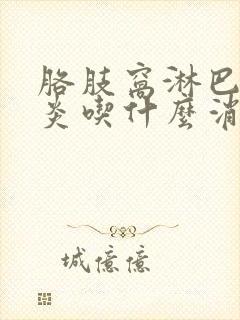 胳肢窩淋巴
炎喫什麼消
城億億